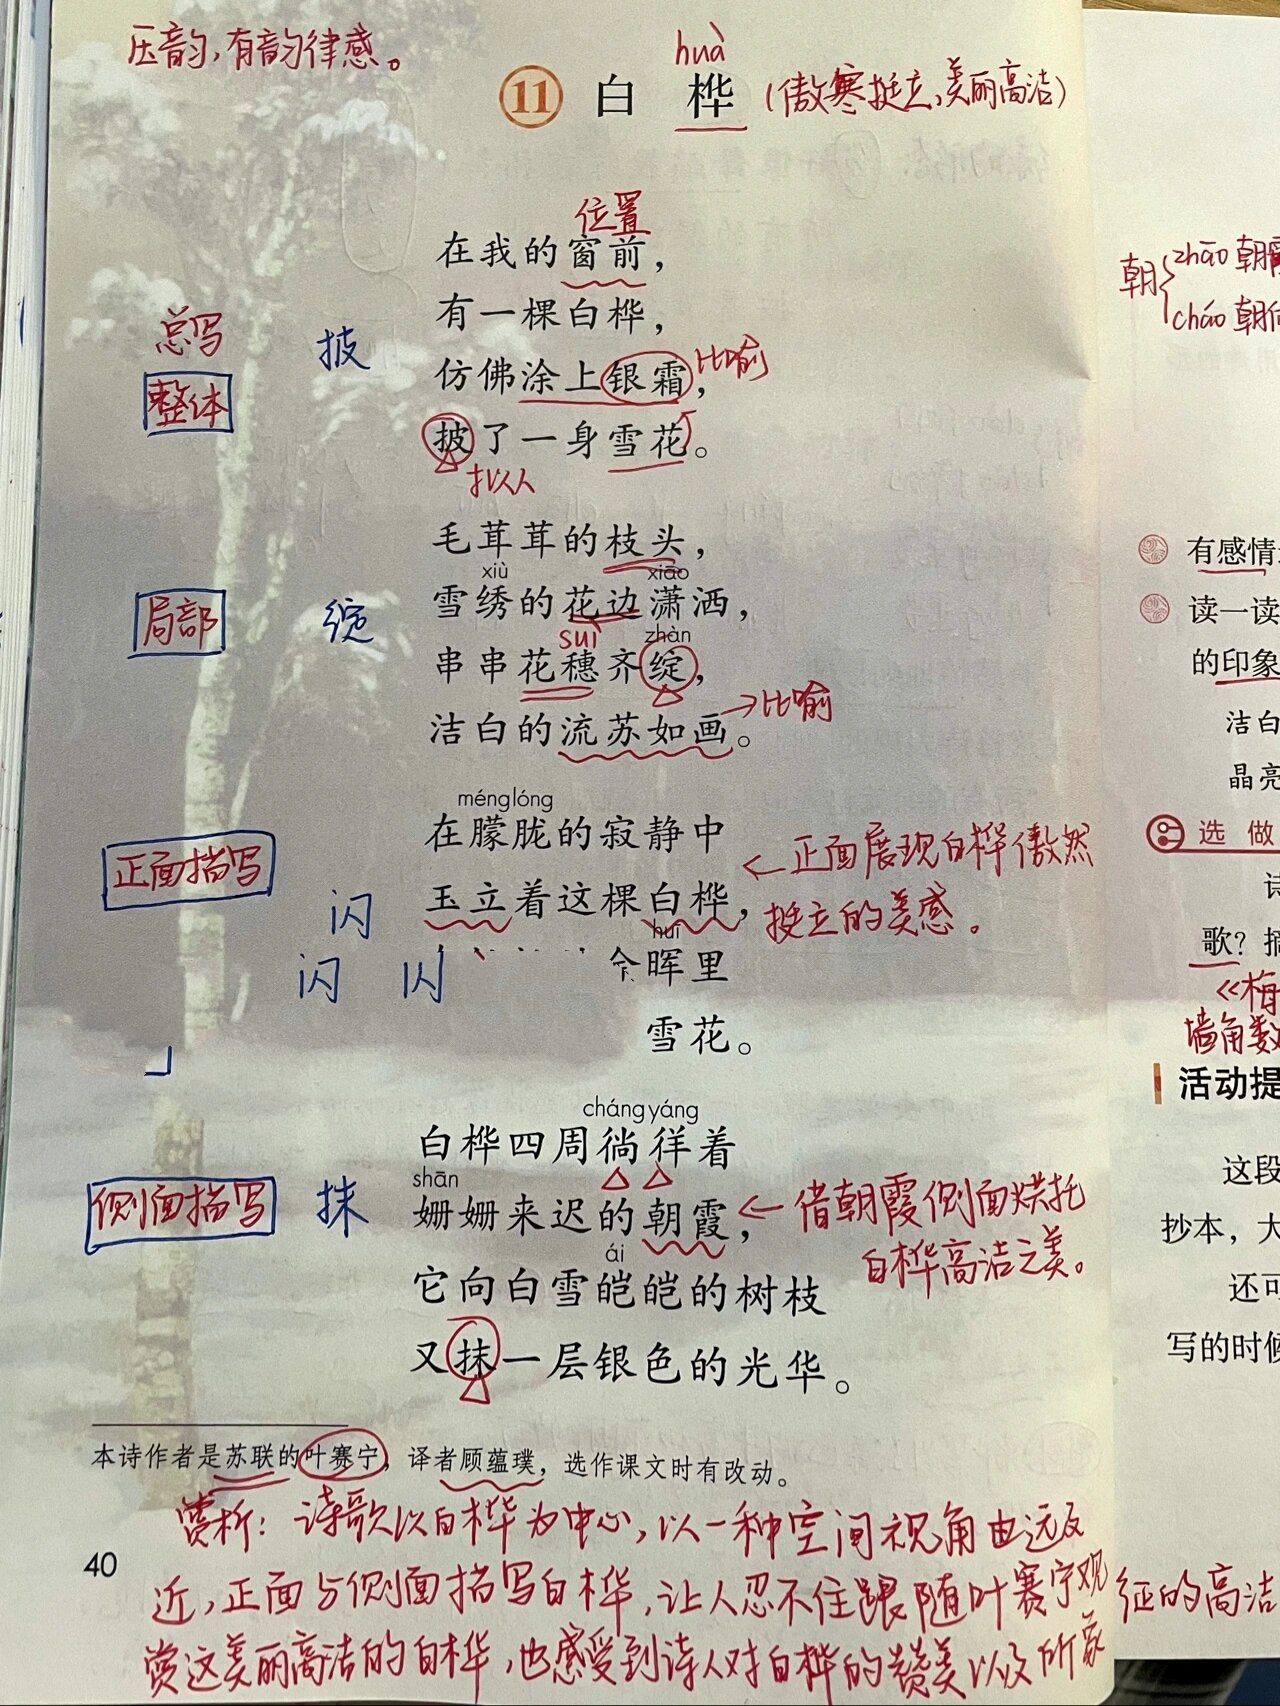 压韵,有韵律感。
huà
11 白桦 (傲寒挺立、美丽高洁)
位置
在我的窗前，
有一棵白桦，
总写 披
整体
仿佛涂上银霜， 比喻
披了一身雪花。
拟人
毛茸茸的枝头，
xiù xiāo
局部 绽 雪绣的花边潇洒，
suì zhàn
串串花穗齐绽，
洁白的流苏如画。 →比喻
ménglóng
在朦胧的寂静中
正面描写 ←正面展现白桦傲然
玉立着这棵白桦， 挺立的美感。
闪
huī
闪 闪 晖里
雪花。
cháng yáng
白桦四周徜徉着
shān
侧面描写 抹 姗姗来迟的朝霞， ←借朝霞侧面烘托
白桦高洁之美。
ái
它向白雪皑皑的树枝
又抹一层银色的光华。
本诗作者是苏联的叶赛宁，译者顾蕴璞，选作课文时有改动。
赏析：诗歌以白桦为中心，以一种空间视角由远及
40
近，正面与侧面描写白桦，让人忍不住跟随叶赛宁观
赏这美丽高洁的白桦，也感受到诗人对白桦的赞美以及所象
征的高洁
朝{zhāo 朝霞
cháo 朝向
有感情
读一读
的印象
洁白
晶亮
选做
诗
歌？摘
《梅
墙角数
活动提
这段
抄本，大
还可
写的时候